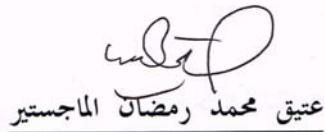 عتيق محمد رمضان الماجستير